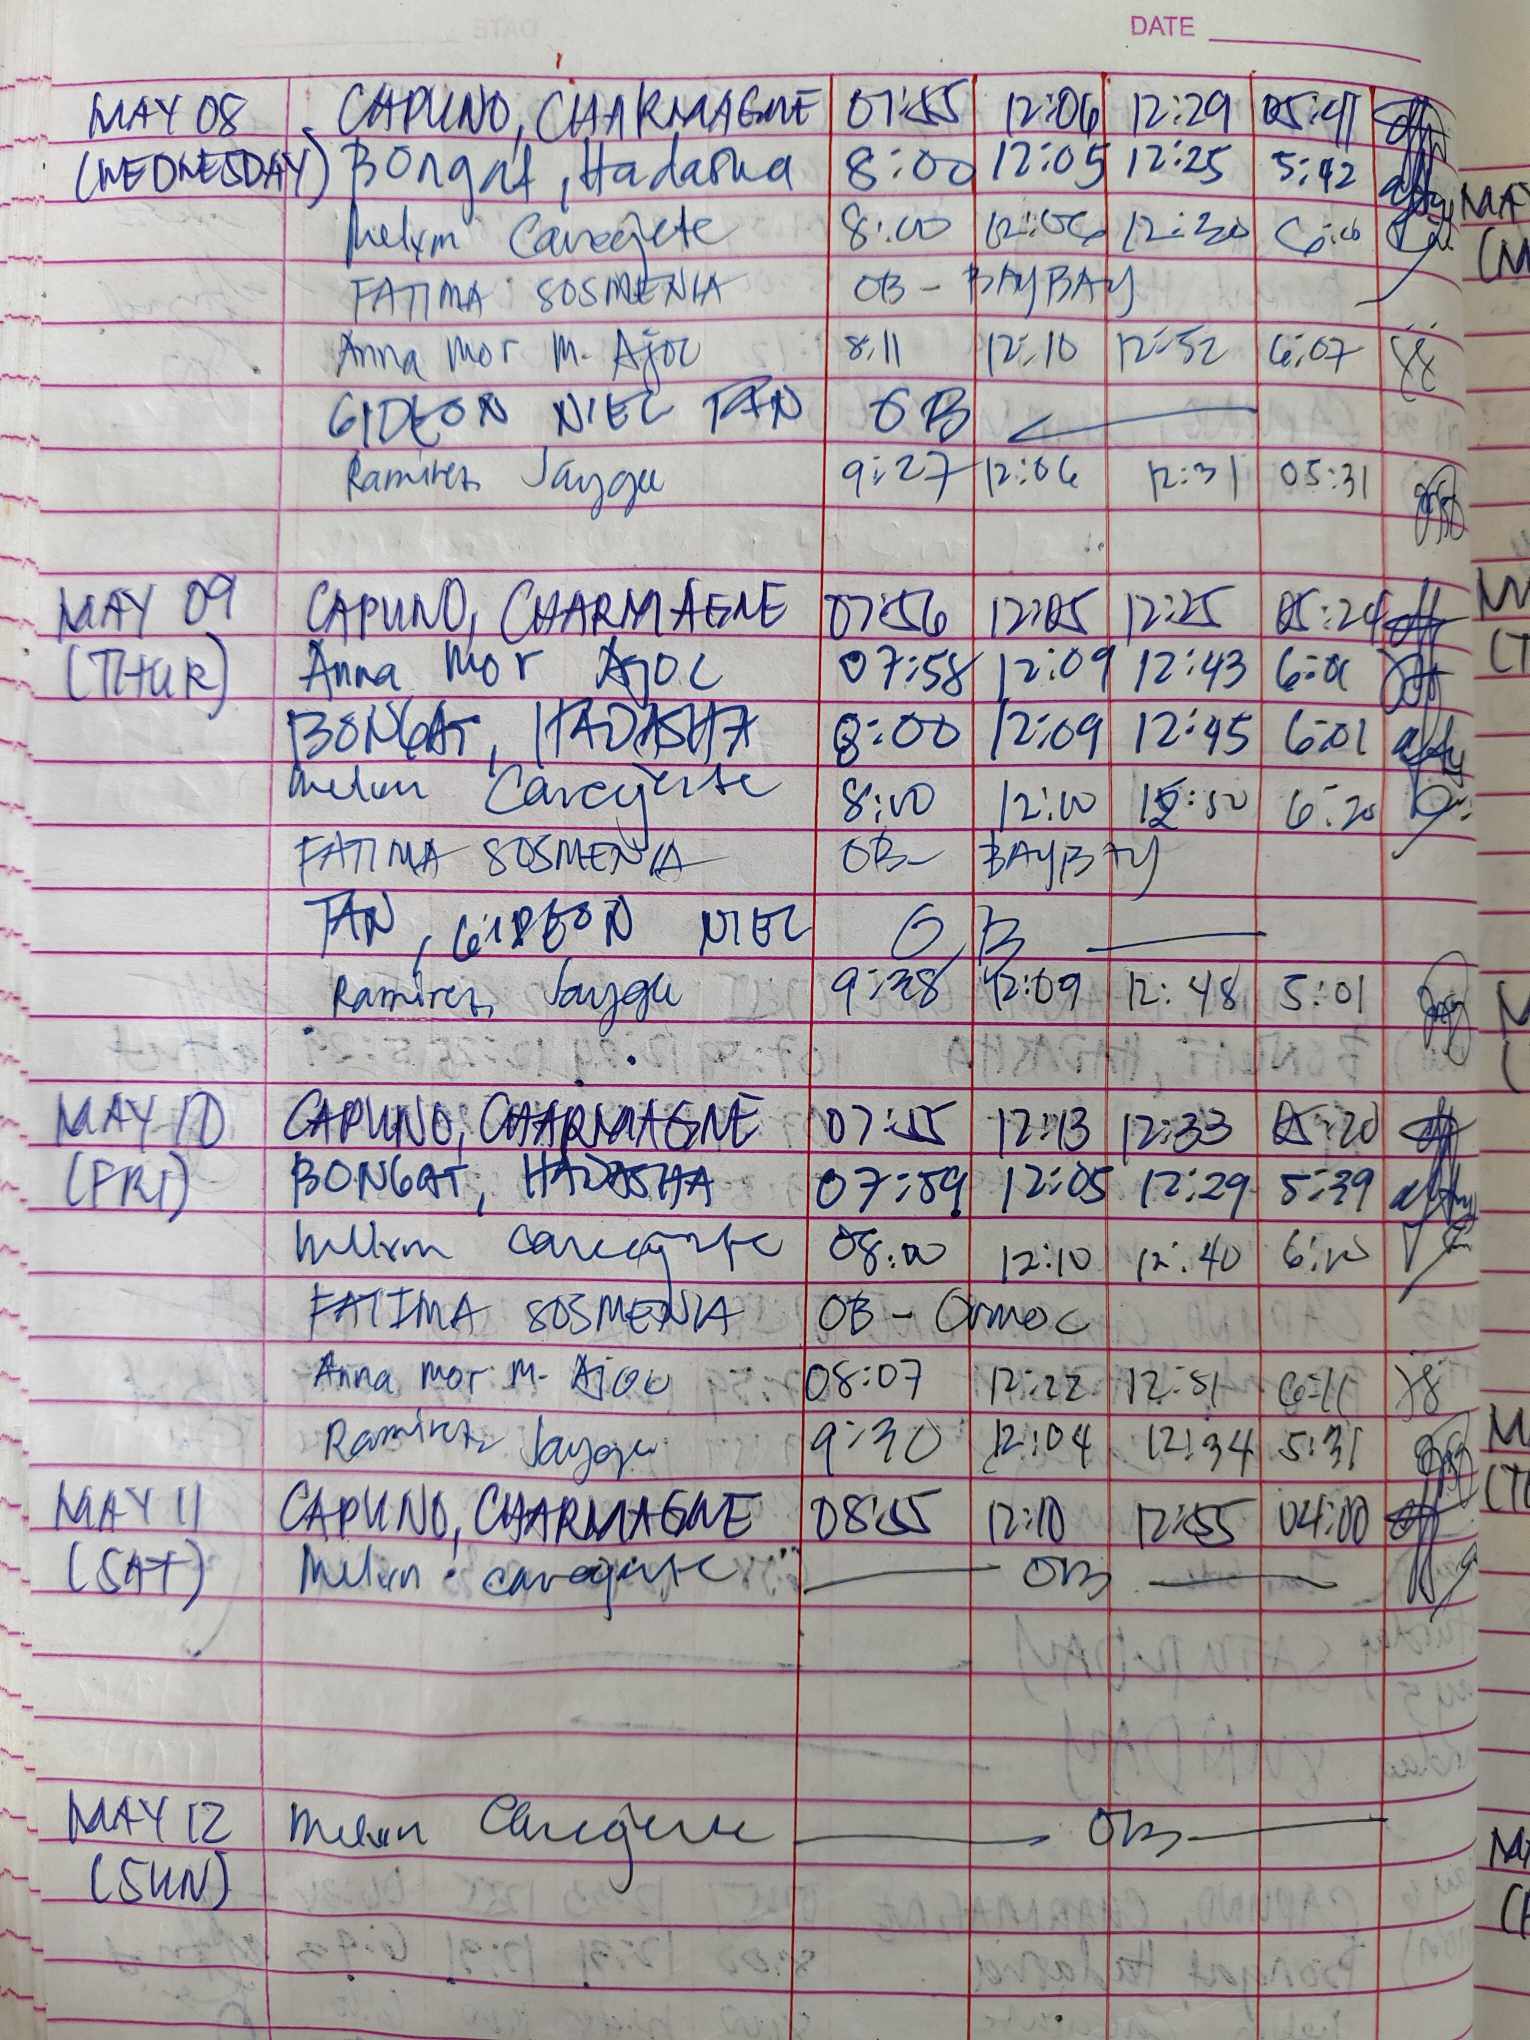 DATE
MAY 08 CAPUNO, CHARMAGNE 07:55 12:06 12:29 05:41
(WEDNESDAY) Bongat, Hadasha 8:00 12:05 12:25 5:42
Melvin 8:00 12:06 12:30
FATIMA SOSMENIA OB - BAYBAY
Anna Mor M. Ajoc 8:11 12:10 12:52 6:07
GIDEON NIEL TAN OB
Ramirez Jaygee 9:27 12:06 12:31 05:31
MAY 09 CAPUNO, CHARMAGNE 07:56 12:05 12:25 05:24
(THUR) Anna Mor Ajoc 07:58 12:09 12:43 6:01
BONGAT, HADASHA 8:00 12:09 12:45 6:01
Melvin 8:00 12:10 6:20
FATIMA SOSMENIA OB- BAYBAY
TAN, GIDEON NIEL OB
Ramirez Jaygee 9:38 12:09 12:48 5:01
MAY 10 CAPUNO, CHARMAGNE 07:55 12:13 12:33 05:20
(FRI) BONGAT, HADASHA 07:59 12:05 12:29 5:39
Melvin 08:00 12:10 12:40
FATIMA SOSMENIA OB - Ormoc
Anna Mor M. Ajoc 08:07 12:22 12:51 6:11
Ramirez Jaygee 9:30 12:04 12:34 5:31
MAY 11 CAPUNO, CHARMAGNE 08:55 12:10 12:55 04:00
(SAT) Melvin OB
MAY 12 Melvin OB
(SUN)